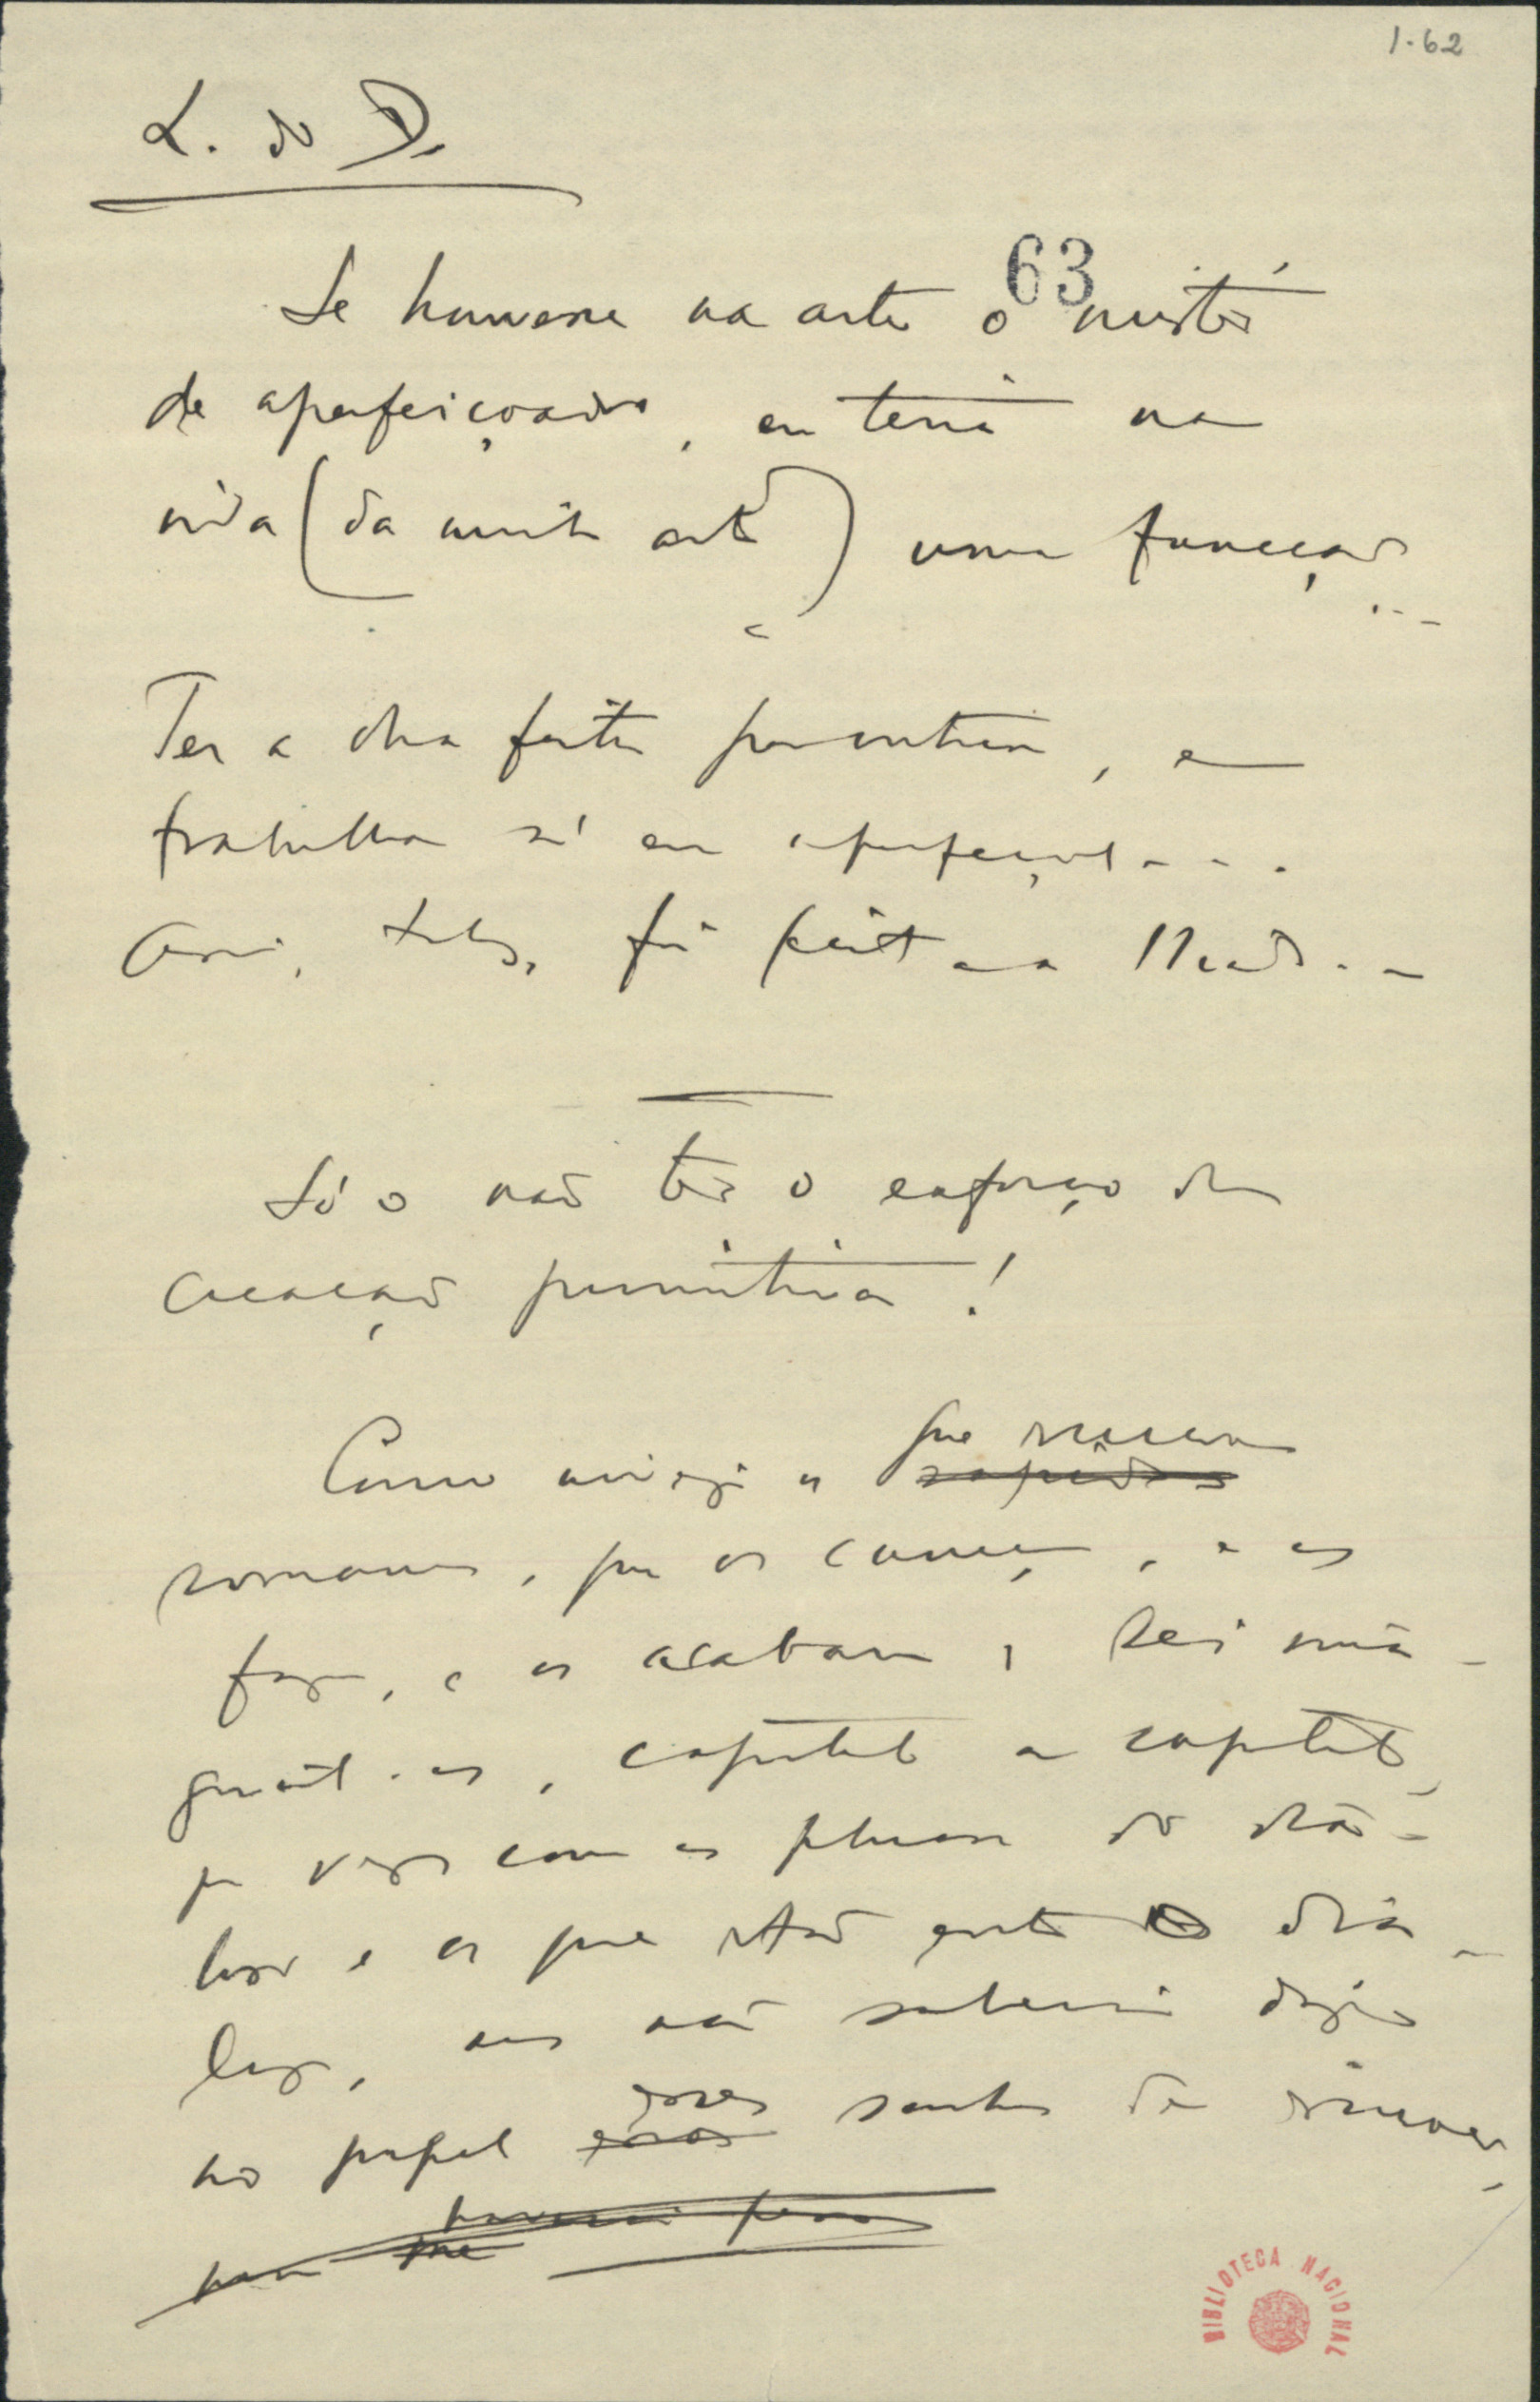 1-62
L. do D.
63
Se houvesse na arte o mistér
de aperfeiçoador, eu teria na
vida (da minha arte) uma funcção...
Ter a obra feita por outrem, e
trabalhar só em aperfeiçoal-a...
Assi, talvez, foi feita a Iliada...
Só o não ter o esforço da
creação primitiva!
Como invejo os que escrevem
romances, que os começam, e os
fazem, e os acabam! Sei ima-
ginal-os, capitulo a capitulo,
por vezes com as phrases do dialo-
logo e as que estão entre o dia-
logo, mas não saberia dizer
no papel esses sonhos de escrever,
BIBLIOTECA NACIONAL